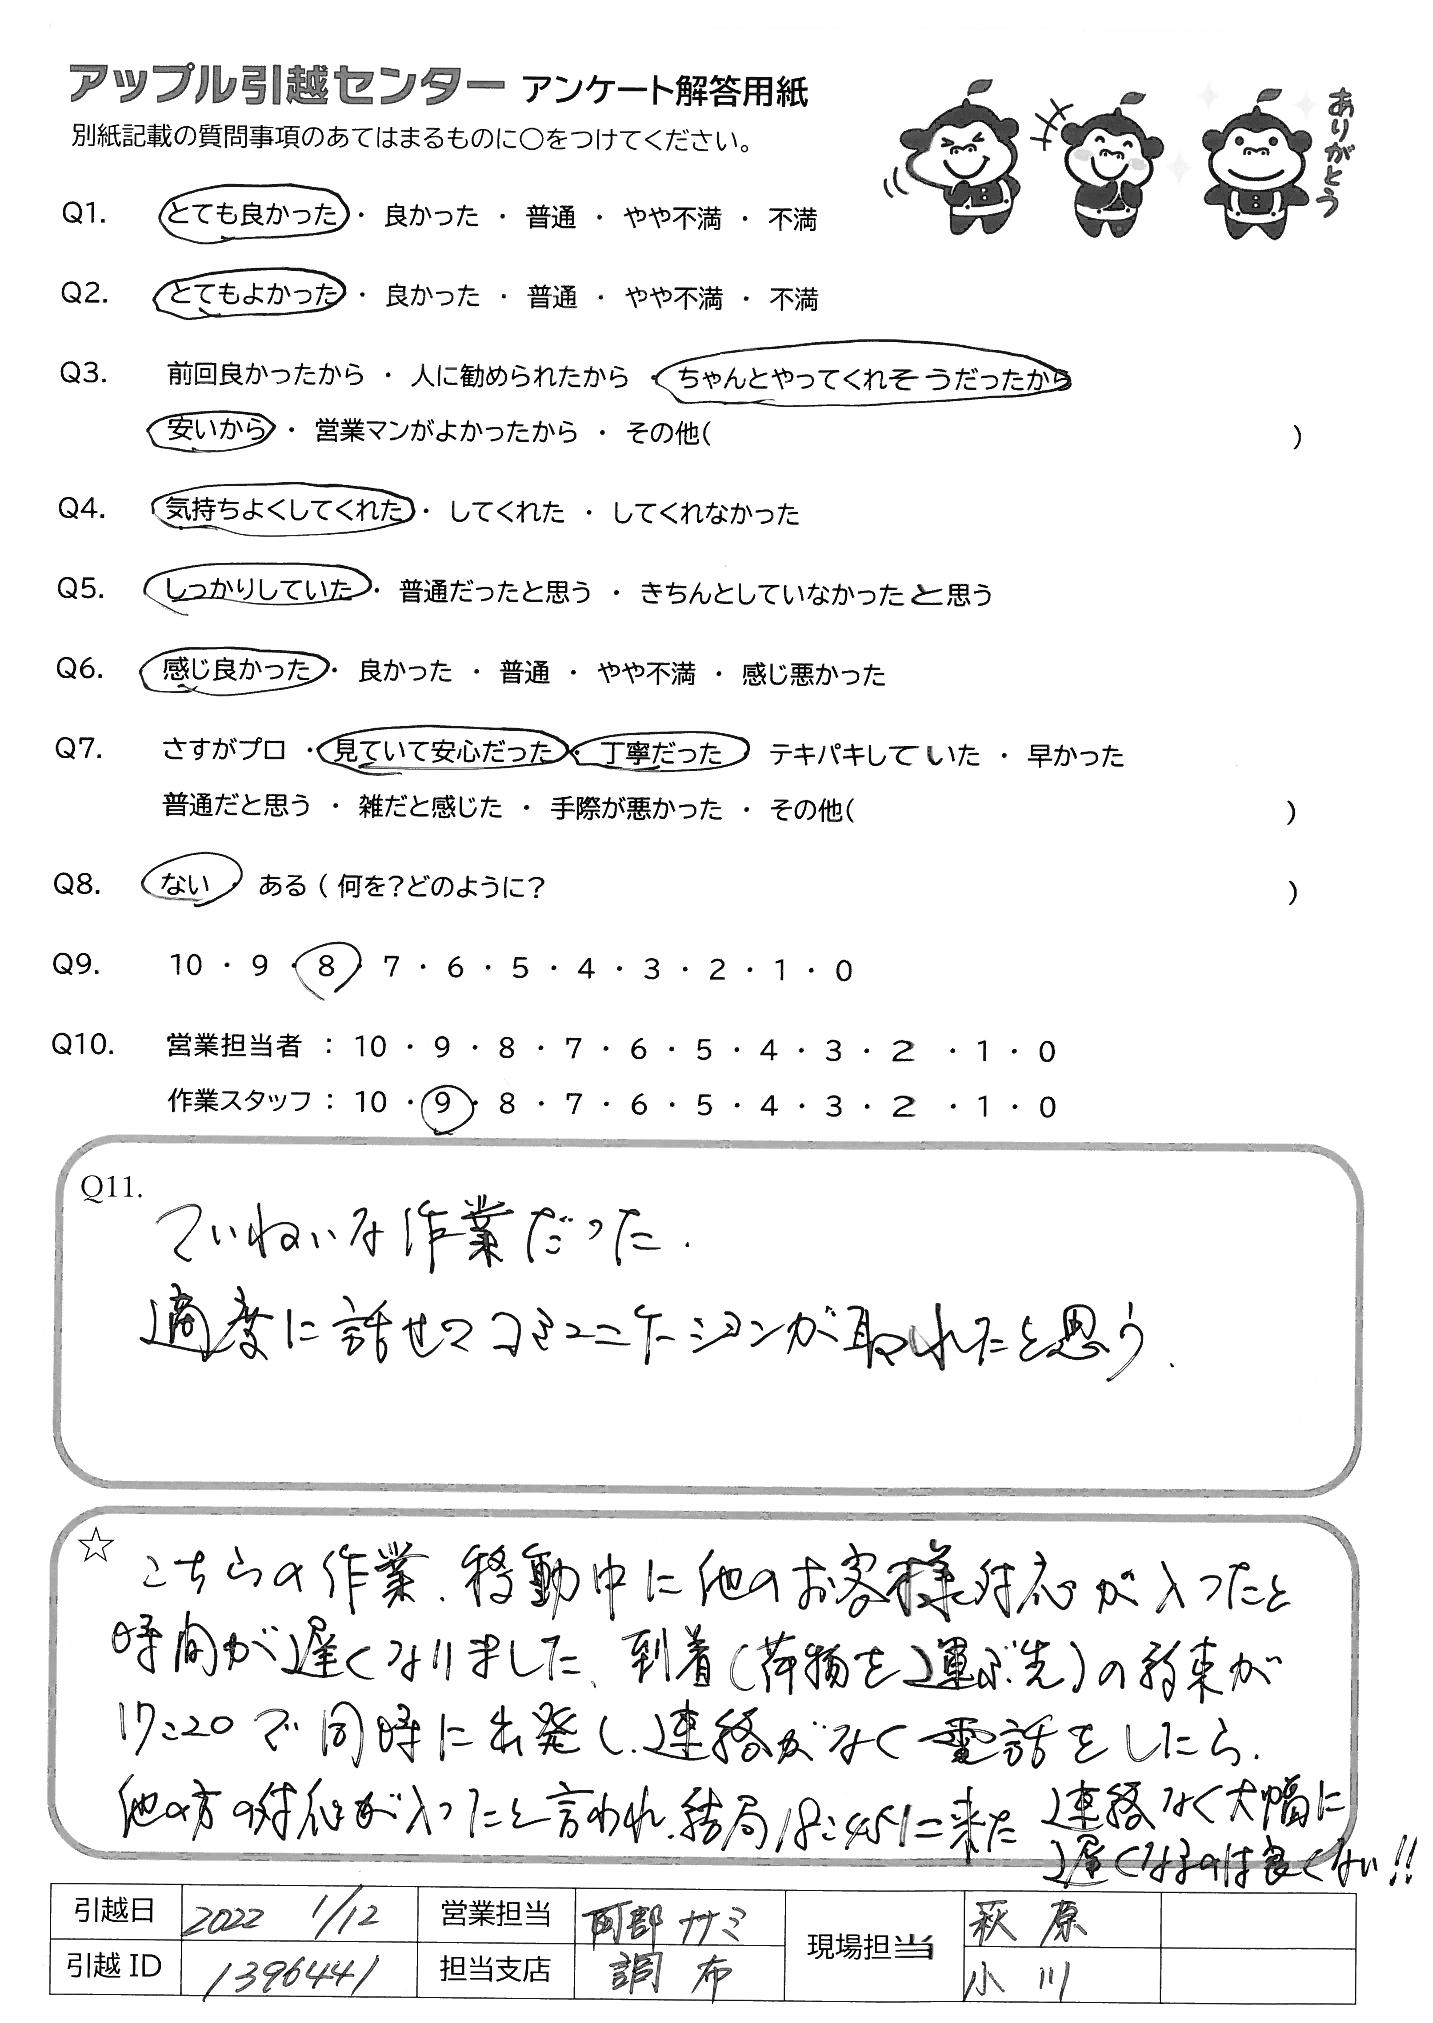 アップル引越センター アンケート解答用紙
別紙記載の質問事項のあてはまるものに○をつけてください。
ありがとう
Q1. とても良かった ・ 良かった ・ 普通 ・ やや不満 ・ 不満
Q2. とてもよかった ・ 良かった ・ 普通 ・ やや不満 ・ 不満
Q3. 前回良かったから ・ 人に勧められたから ・ ちゃんとやってくれそうだったから
安いから ・ 営業マンがよかったから ・ その他( )
Q4. 気持ちよくしてくれた ・ してくれた ・ してくれなかった
Q5. しっかりしていた ・ 普通だったと思う ・ きちんとしていなかったと思う
Q6. 感じ良かった ・ 良かった ・ 普通 ・ やや不満 ・ 感じ悪かった
Q7. さすがプロ ・ 見ていて安心だった ・ 丁寧だった テキパキしていた ・ 早かった
普通だと思う ・ 雑だと感じた ・ 手際が悪かった ・ その他( )
Q8. ない ・ ある ( 何を?どのように? )
Q9. 10 ・ 9 ・ 8 ・ 7 ・ 6 ・ 5 ・ 4 ・ 3 ・ 2 ・ 1 ・ 0
Q10. 営業担当者 : 10 ・ 9 ・ 8 ・ 7 ・ 6 ・ 5 ・ 4 ・ 3 ・ 2 ・ 1 ・ 0
作業スタッフ : 10 ・ 9 ・ 8 ・ 7 ・ 6 ・ 5 ・ 4 ・ 3 ・ 2 ・ 1 ・ 0
Q11.
ていねいな作業だった.
適度に話せてコミュニケーションが取れたと思う.
☆
こちらの作業、移動中に他のお客様対応が入ったと
時間が遅くなりました、到着(荷物を運ぶ先)の約束が
17:20で同時に出発し、連絡がなく電話をしたら、
他の方の対応が入ったと言われ、結局18:45に来た 連絡なく大幅に
遅くなるのは良くない!!
引越日 2022 1/12 営業担当 阿部 ナサミ 現場担当 萩原
引越ID 1396441 担当支店 調布 小川